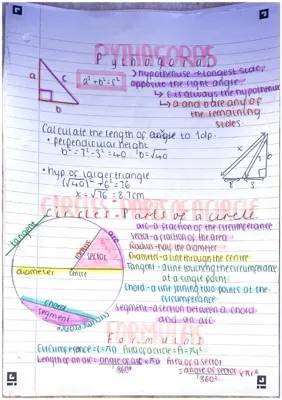 PYTHAGORAS
Pythagoras
a
c
b
a² + b² = c²
> hypothenuse → longest side,
opposite the right angle.
↳ c is always the hypothenuse
↳ a and b are any of
the remaining
sides.
Calculate the length of angle to 1dp.
• perpendicular height
b² = 7² - 3² = 40 b = √40
• hyp of larger triangle
(√40)² + 6² = 76
x = √76 = 8.7cm
CIRCLES - PARTS OF A CIRCLE
Circles - Parts of a circle.
tangent
arc
radius
sector
diameter
centre
chord
segment
circumference
arc - a fraction of the circumference
sector - a fraction of the area
Radius - half the diameter
Diameter - a line through the centre
Tangent - a line touching the circumference
at a single point
Chord - a line joining two points at the
circumference
Segment - a section between a chord
and an arc
FORMULAS
Formulas
Circumference = C = πd Area of a circle = A = πr²
Length of an arc = angle of arc × πd
360°
Area of a sector
= angle of sector × πr²
360°